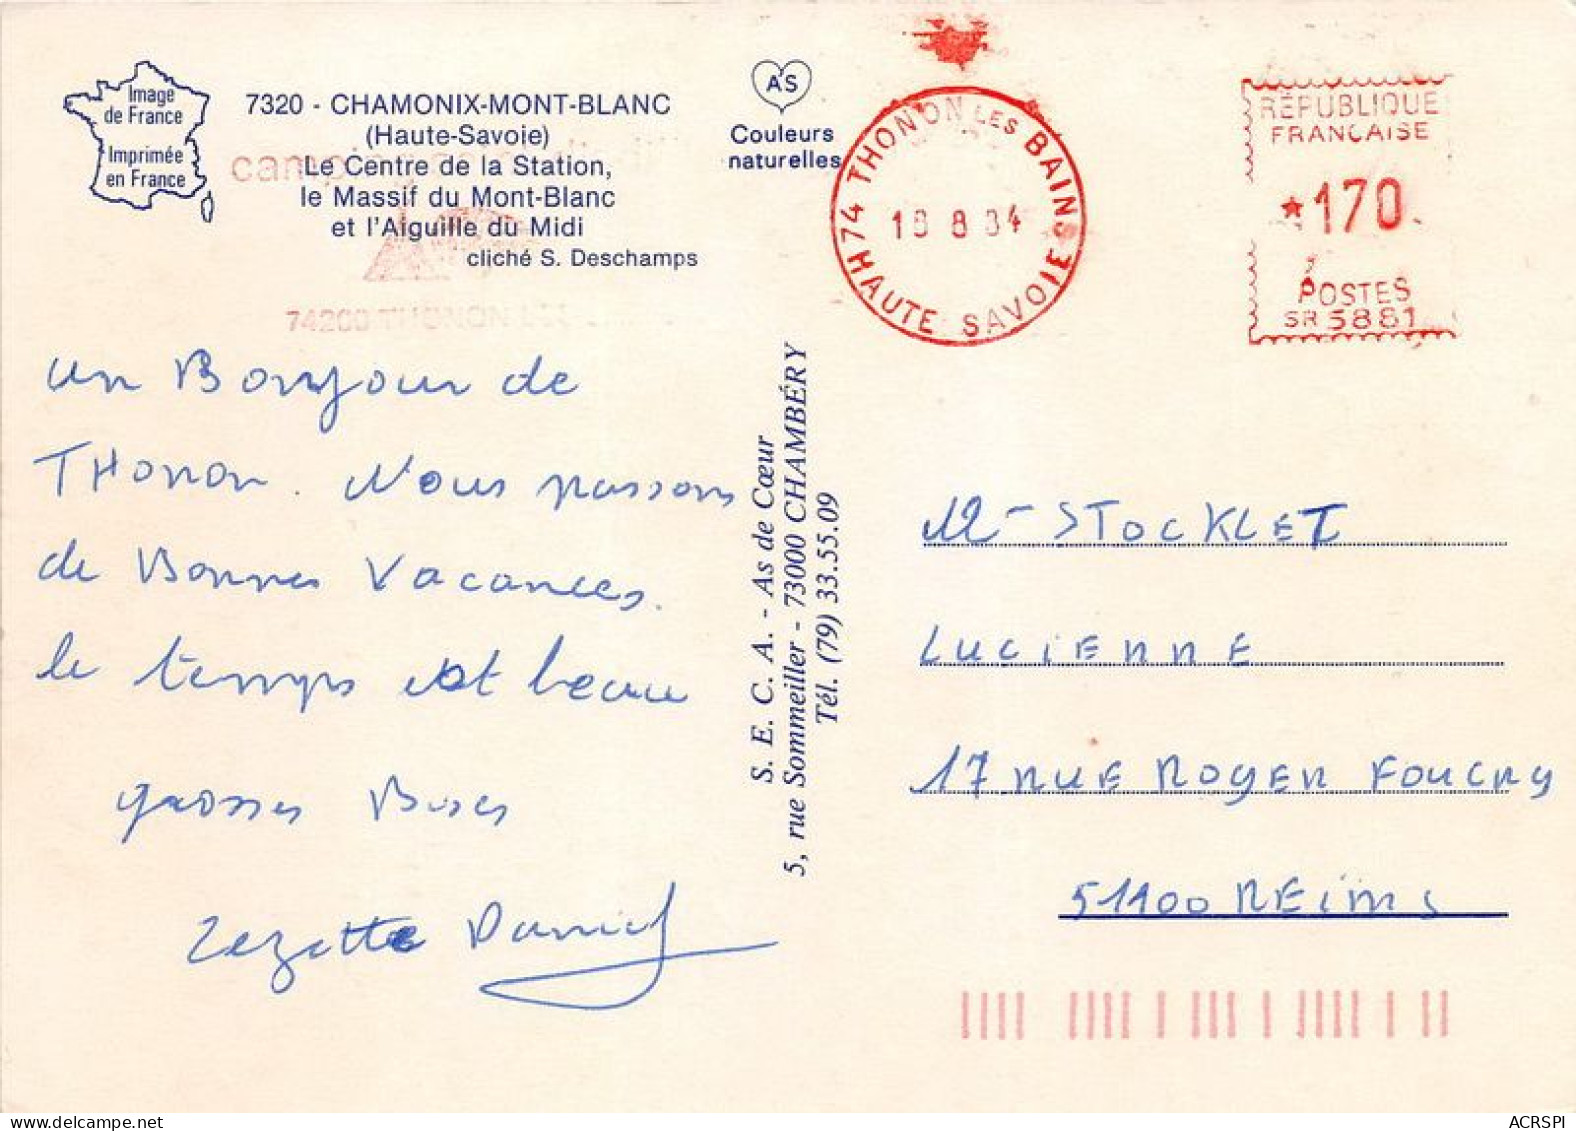 Image
de France
Imprimée
en France
7320 - CHAMONIX-MONT-BLANC
(Haute-Savoie)
Le Centre de la Station,
le Massif du Mont-Blanc
et l'Aiguille du Midi
cliché S. Deschamps
74200 THONON
AS
Couleurs
naturelles
74 THONON LES BAINS
HAUTE SAVOIE
18 8 84
RÉPUBLIQUE
FRANCAISE
*170
POSTES
SR 5881
un Bonjour de
THonon. Nous passons
de Bonnes Vacances.
le temps est beau
grosses Bises
Zezette Daniel
S. E. C. A. - As de Cœur
5, rue Sommeiller - 73000 CHAMBÉRY
Tél. (79) 33.55.09
STOCKLET
LUCIENNE
17 RUE ROGER FOUCRY
51100 REIMS
ACRSPI